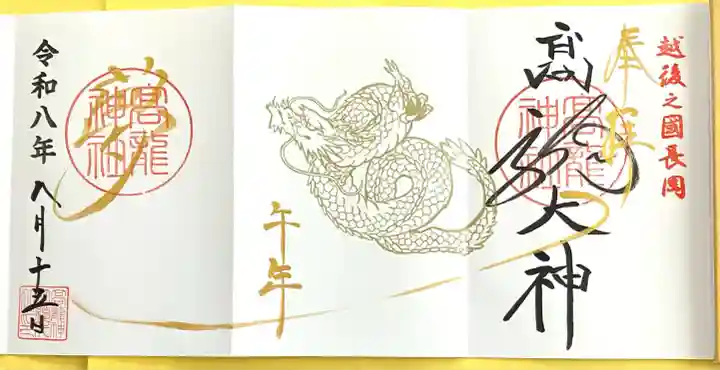 越後之國長岡
奉拝
高龍大神
高龍
神社
午年
高龍
神社
令和八年八月十五日